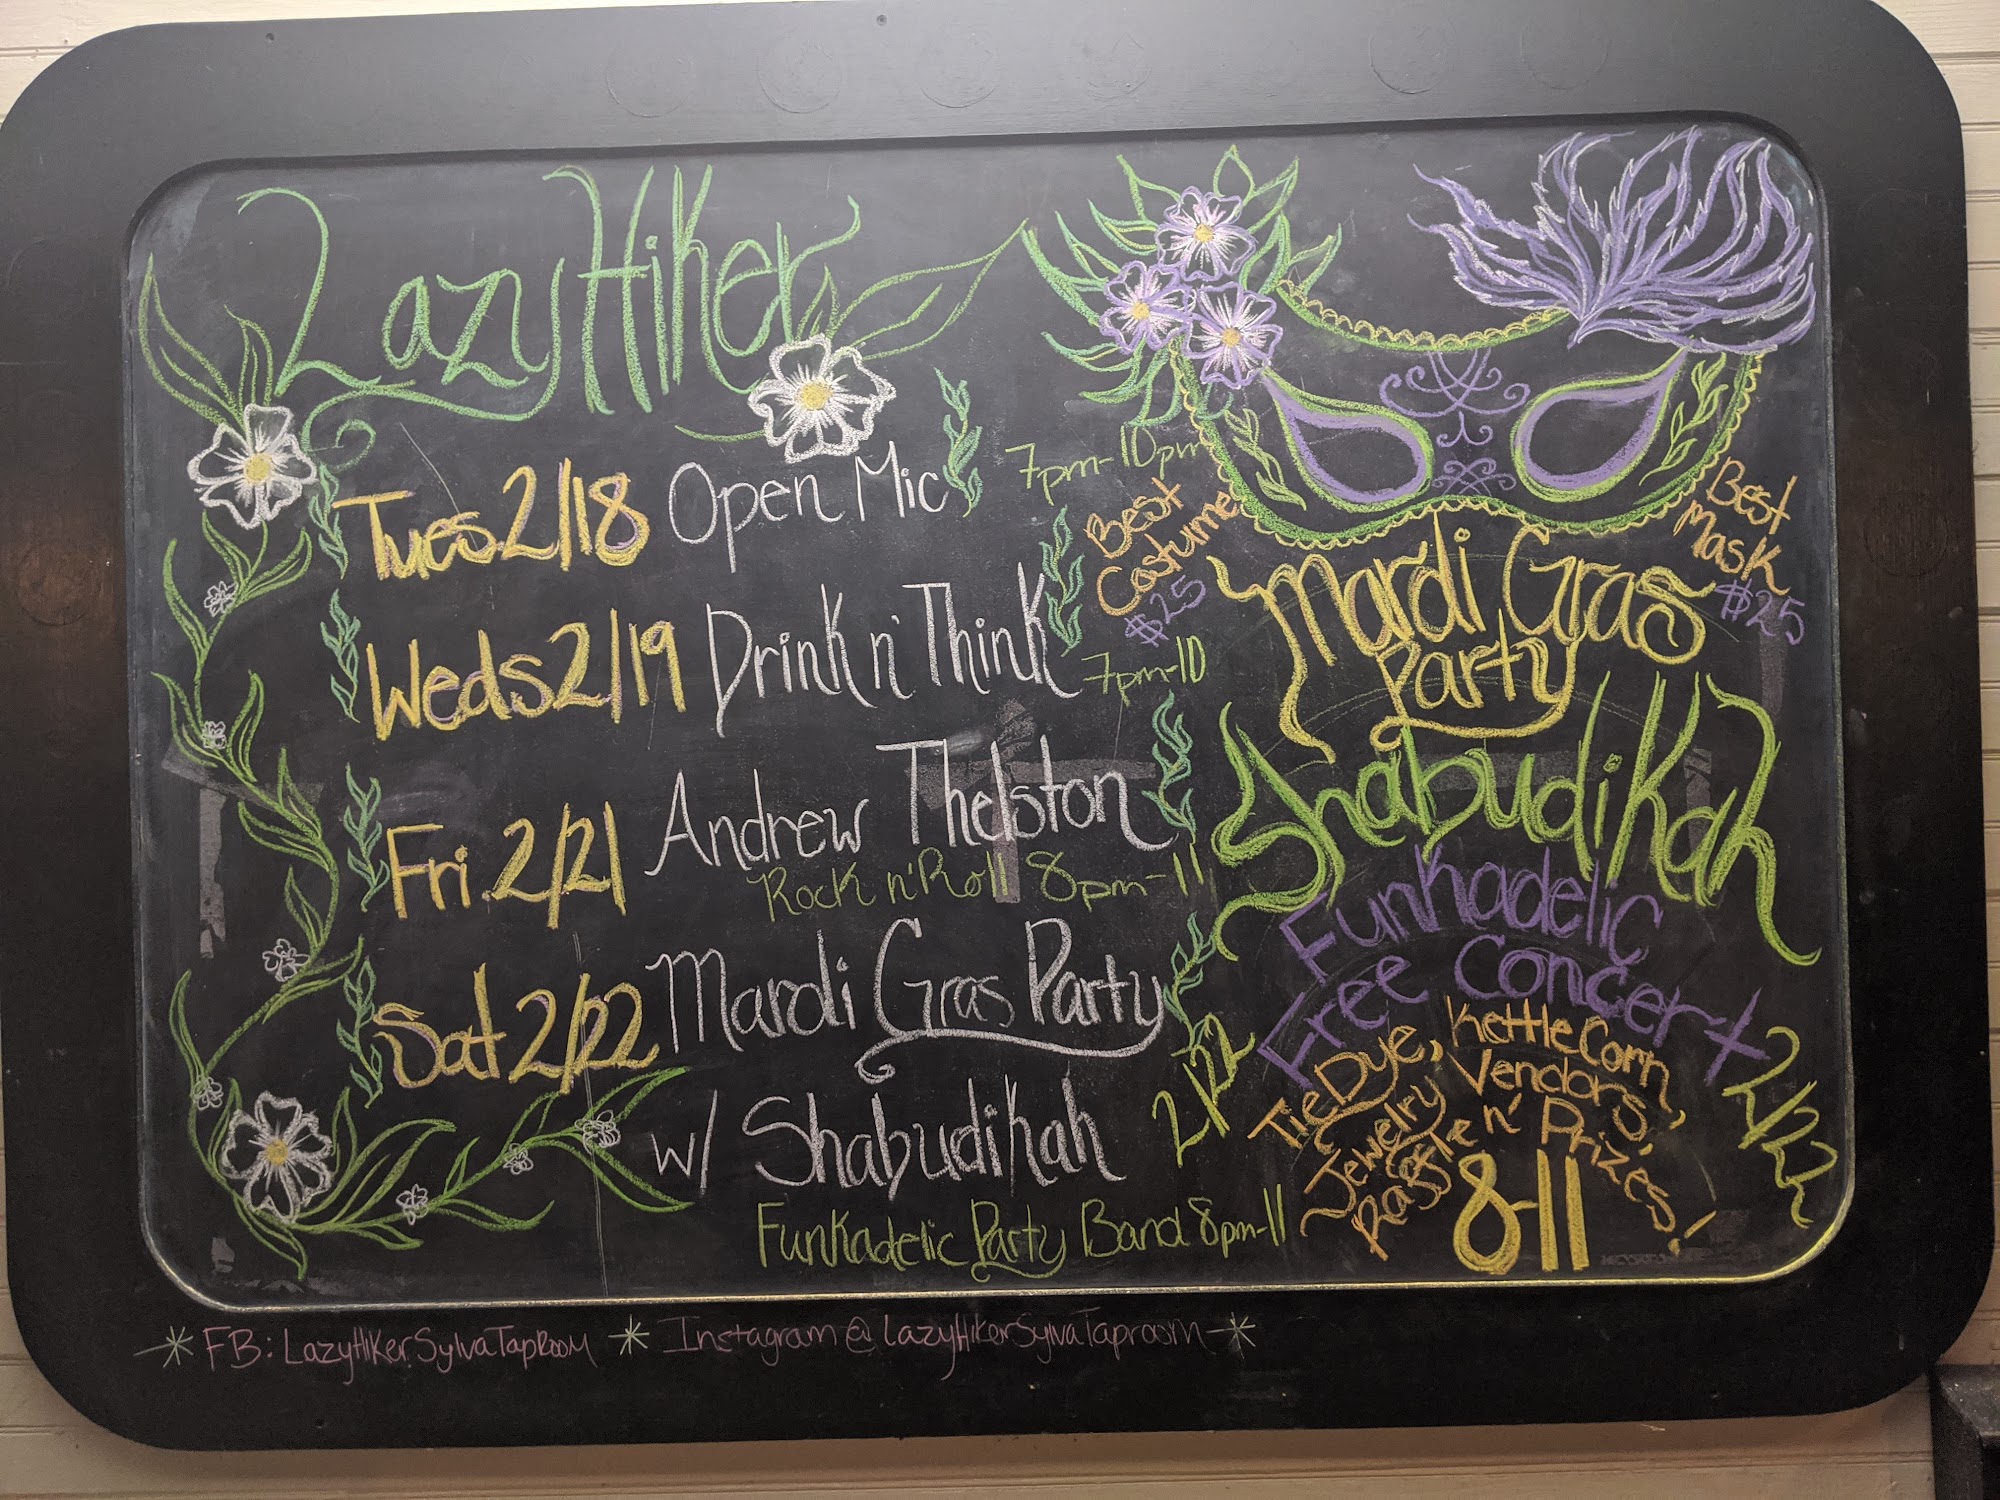 Lazy Hiker
Tues 2/18 Open Mic 7pm-10pm
Weds 2/19 Drink n' Think 7pm-10
Fri 2/21 Andrew Thelston
Rock n' Roll 8pm-11
Sat 2/22 Mardi Gras Party
w/ Shabudikah
Funkadelic Party Band 8pm-11
Best
Costume
$25
Best
Mask
$25
Mardi Gras
Party
Shabudikah
Funkadelic
Free Concert
2/22
2/22
Tie Dye, Kettle Corn,
Jewelry Vendors,
Raffle n' Prizes!
8-11
FB: LazyHikerSylvaTapRoom Instagram @ LazyHikerSylvaTaproom